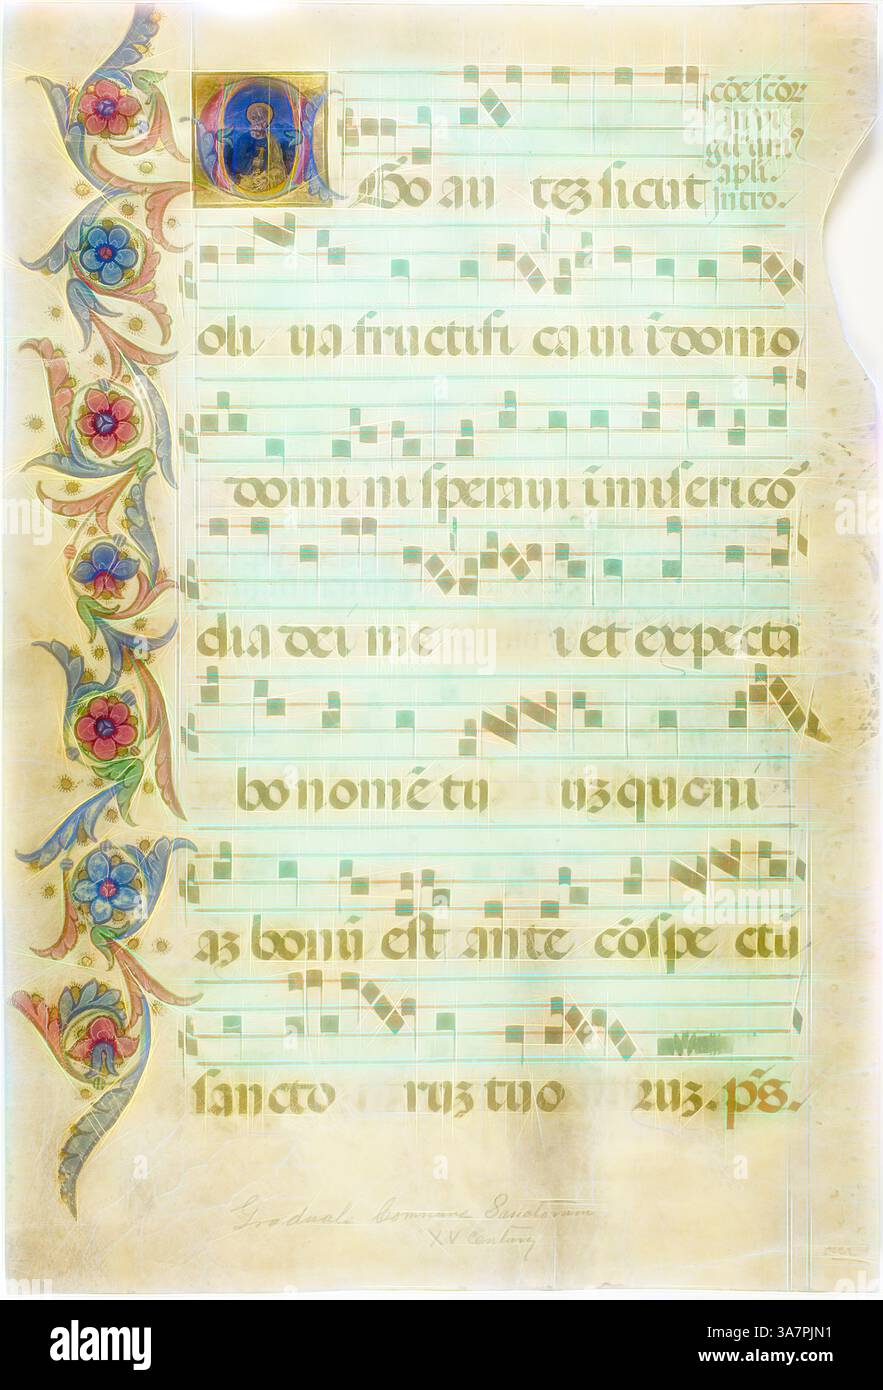 cōe scōr
gilium
apli.
Intro.
Ego au tez sicut
oli ua fructifi ca ui i domo
domi ni speraui i miseri cō
dia dei me i et expecta
bo nomē tu uz quoni
az bonū est ante cōspe ctū
sancto ruz tuo ruz. ps.
Graduale Comune Sanctorum
XV Century
alamy
Image ID: 3A7PJN1
www.alamy.com